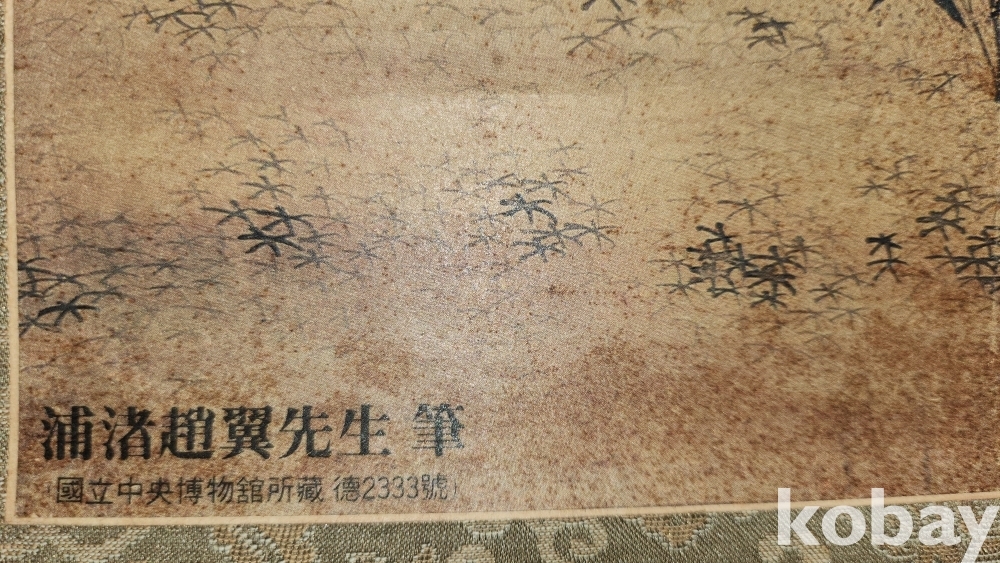 浦渚趙翼先生 筆
(國立中央博物舘所藏 德2333號)
kobay